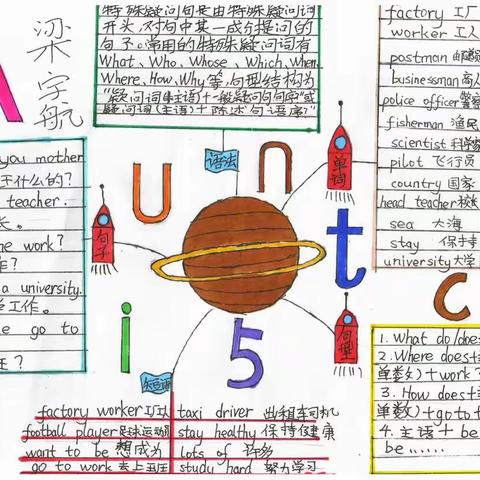 梁宇航
特殊疑问句是由特殊疑问词
开头,对句中某一成分提问的
句子。常用的特殊疑问词有
What、Who、Whose、Which、When、
Where、How、Why等,句型结构为
"疑问词(主语)+一般疑问句句序"或
疑问词(主语)+陈述句语序"
语法
factory 工厂
worker 工人
postman 邮递员
businessman 商人
police officer 警察
fisherman 渔民
scientist 科学家
pilot 飞行员
country 国家
head teacher 校长
sea 大海
stay 保持
university 大学
单词
you mother
什么的?
teacher.
长。
he work?
作?
a university.
工作。
e go to
班?
句子
U n i t 5
句型
c
1. What do/does
2. Where does+
单数)+work?
3. How does+
单数)+go to
4. 主语+be
be……
短语
factory worker 工人
football player 足球运动员
want to be 想成为
go to work 去上班
taxi driver 出租车司机
stay healthy 保持健康
lots of 许多
study hard 努力学习